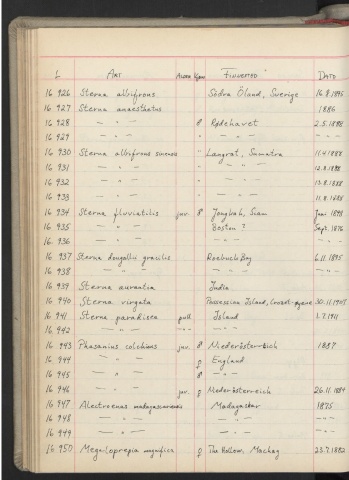 L Art Ålder Kön Fyndort Dato
16 926 Sterna albifrons Södra Öland, Sverige 16.8.1895
16 927 Sterna anaesthatus 1886
16 928 — " — ♂ Rødehavet 2.5.1898
16 929 — " — " — " — — " —
16 930 Sterna albifrons sinensis " Langrat, Sumatra 11.4.1888
16 931 — " — " — " — 12.8.1888
16 932 — " — " — " — 13.8.1888
16 933 — " — " — " — 11.8.1888
16 934 Sterna fluviatilis juv. ♂ Jongkah, Siam Juni 1898
16 935 — " — Boston ? Sept. 1876
16 936 — " — — " — — " —
16 937 Sterna dougallii gracilis Roebuck Bay 6.11.1895
16 938 — " — — " — — " —
16 939 Sterna aurantia India
16 940 Sterna virgata Possession Island, Crozet- 30.11.1907
16 941 Sterna paradisea pull Island 1.7.1911
16 942 — " — — " — — " — — " —
16 943 Phasanius colchicus juv. ♂ Niederösterreich 1887
16 944 — " — ♀ England
16 945 — " — ♂ — " —
16 946 — " — juv. ♀ Niederösterreich 26.11.1884
16 947 Alectroenas madagascariensis Madagaskar 1875
16 948 — " — — " — — " —
16 949 — " — — " — — " —
16 950 Megaloprepia magnifica ♀ The Hollow, Mackay 23.7.1882